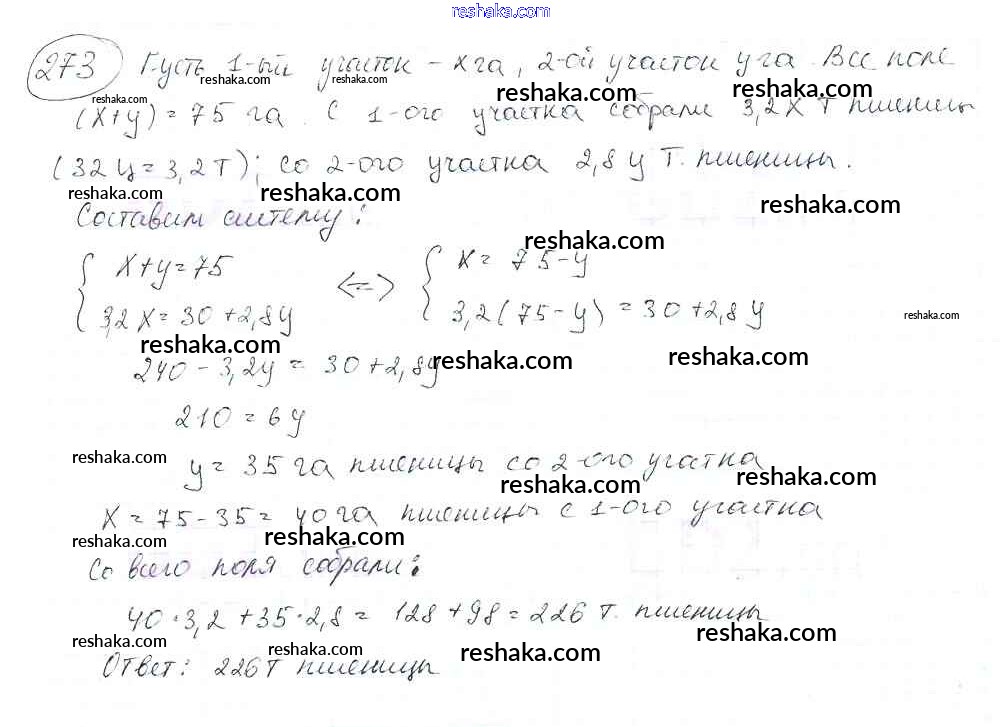 reshaka.com
273 Пусть 1-ый участок - x га, 2-ой участок y га. Все поле
reshaka.com reshaka.com reshaka.com reshaka.com
reshaka.com
(x+y) = 75 га. С 1-ого участка собрали 3,2x т пшеницы
(32 ц = 3,2 т); со 2-ого участка 2,8 y т. пшеницы.
reshaka.com reshaka.com reshaka.com
Составим систему:
reshaka.com
{ x+y=75 <=> { x = 75-y
3,2x = 30+2,8y 3,2(75-y) = 30+2,8y
reshaka.com
reshaka.com reshaka.com reshaka.com
240 - 3,2y = 30+2,8y
210 = 6y
y = 35 га пшеницы со 2-ого участка
reshaka.com reshaka.com reshaka.com
x = 75-35 = 40 га пшеницы с 1-ого участка
reshaka.com reshaka.com
Со всего поля собрали:
40·3,2+35·2,8 = 128+98 = 226 т. пшеницы
reshaka.com reshaka.com
Ответ: 226 т пшеницы
reshaka.com reshaka.com